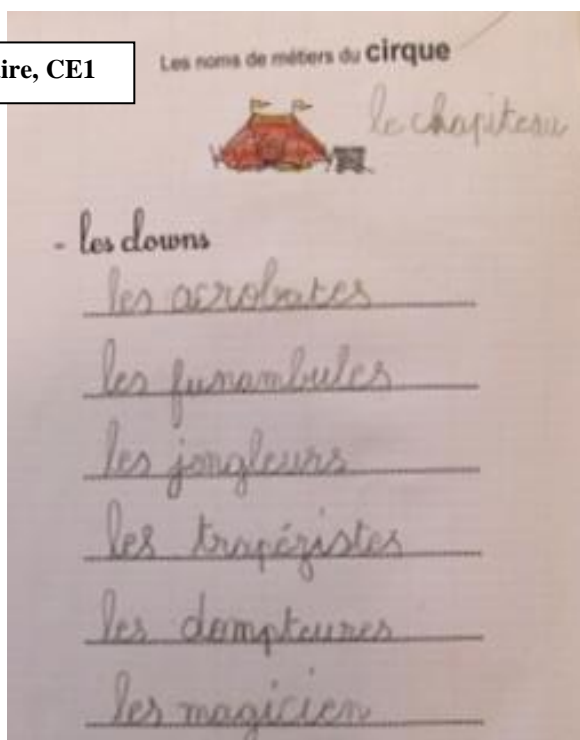 ire, CE1
Les noms de métiers du cirque
le chapiteau
- les clowns
les acrobates
les funambules
les jongleurs
les trapézistes
les dompteures
les magicien